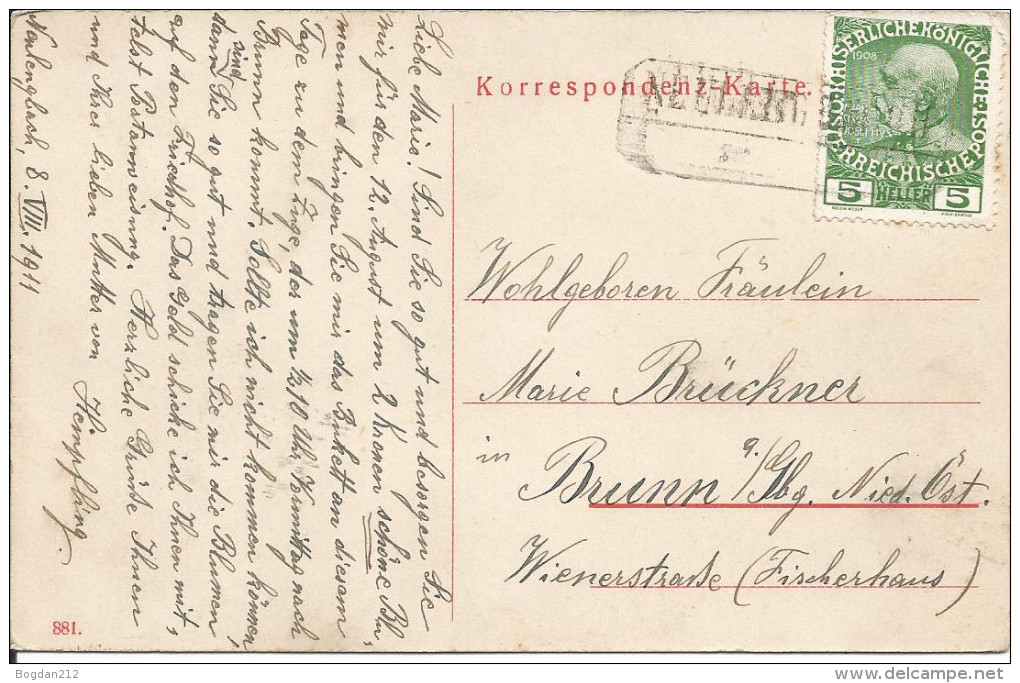 Korrespondenz-Karte.
KAISERLICHEKÖNIGLICHE
ÖSTERREICHISCHE POST
1908
5 HELLER 5
NEULENGBACH
Liebe Marie! Sind Sie so gut und besorgen Sie
mir für den 12. August um 2 Kronen schöne Blu,
men und bringen Sie mir das Bukett an diesem
Tage zu dem Zuge, der um ½10 Uhr Vormittag nach
Brunn kommt. Sollte ich nicht kommen können,
dann sind Sie so gut und tragen Sie mir die Blumen
auf den Friedhof. Das Geld schicke ich Ihnen mit,
telst Postanweisung. Herzliche Grüße Ihnen
und Ihrer lieben Mutter von
Hempfling.
Neulengbach, 8. VIII. 1911
Wohlgeboren Fräulein
Marie Brückner
in Brunn a/Gbg. Nied. Öst.
Wienerstraße (Fischerhaus)
881.
Bogdan212
delcampe.net